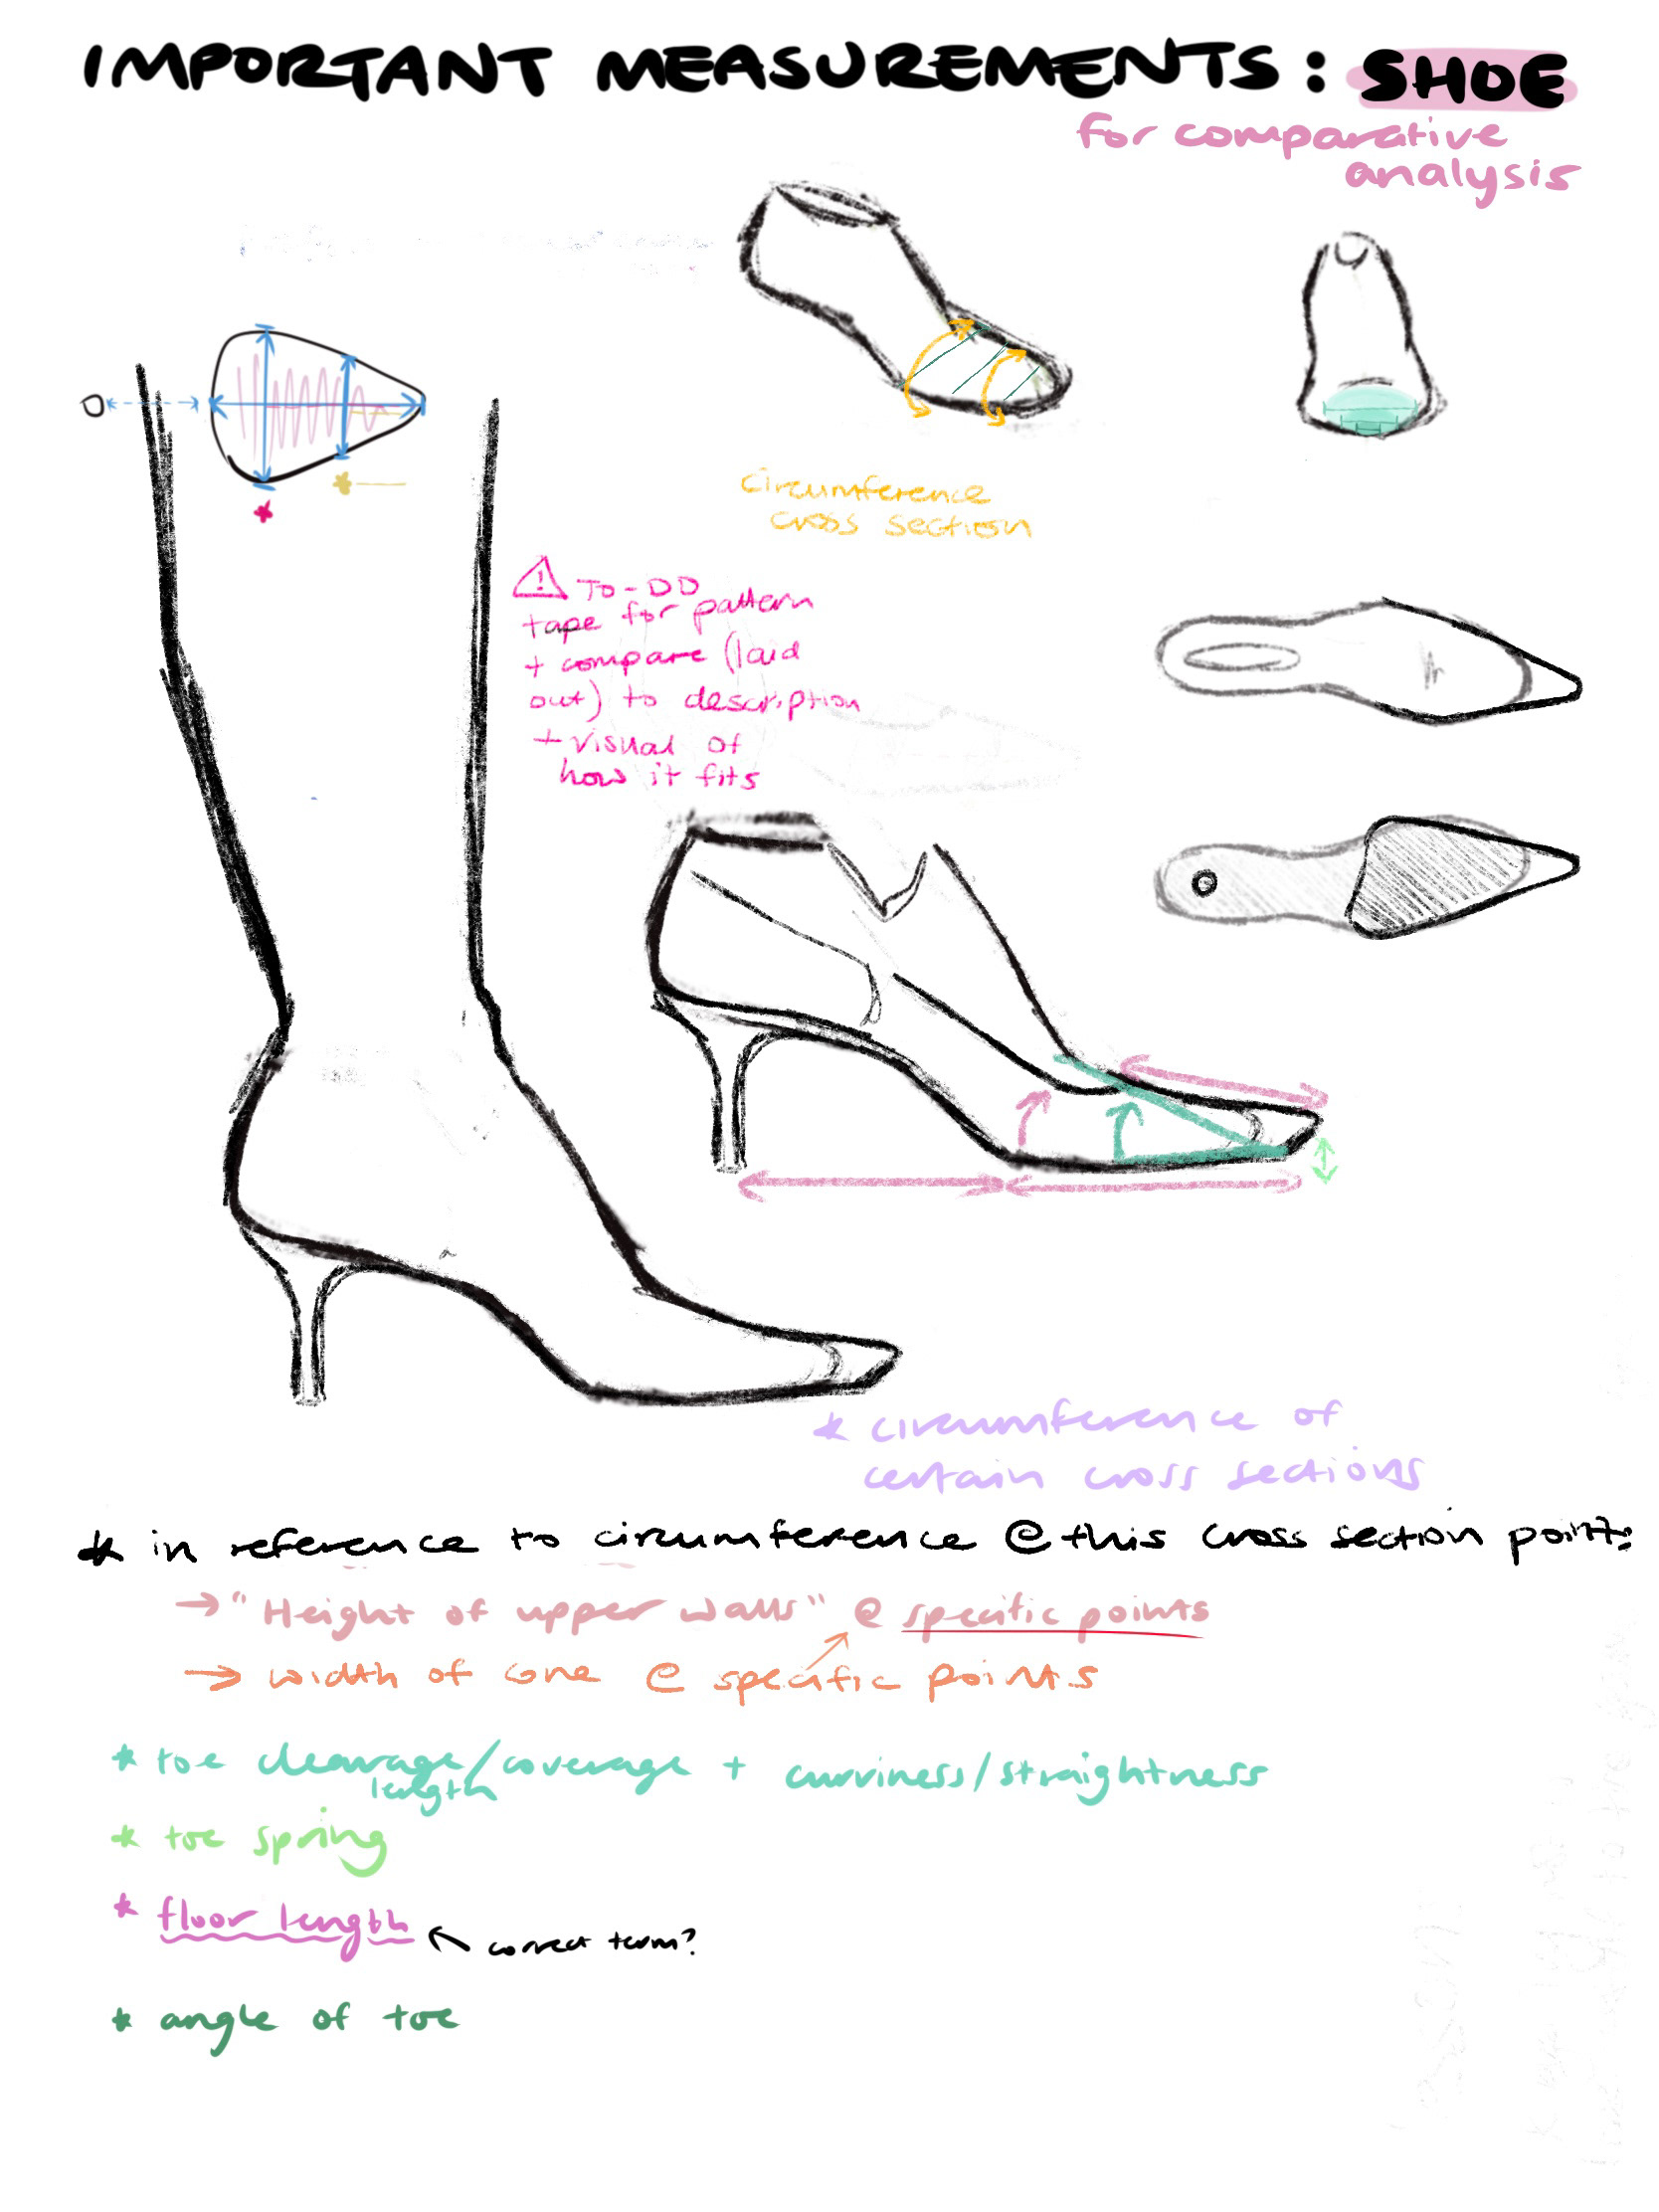 IMPORTANT MEASUREMENTS: SHOE
for comparative
analysis
circumference
cross section
! TO-DO
tape for pattern
+ compare (laid
out) to description
+ visual of
how it fits
* circumference of
certain cross sections
* in reference to circumference @ this cross section point:
→ "Height of upper walls" @ specific points
→ width of cone @ specific points
* toe cleavage/coverage + curviness/straightness
length
* toe spring
* floor length ← correct term?
* angle of toe